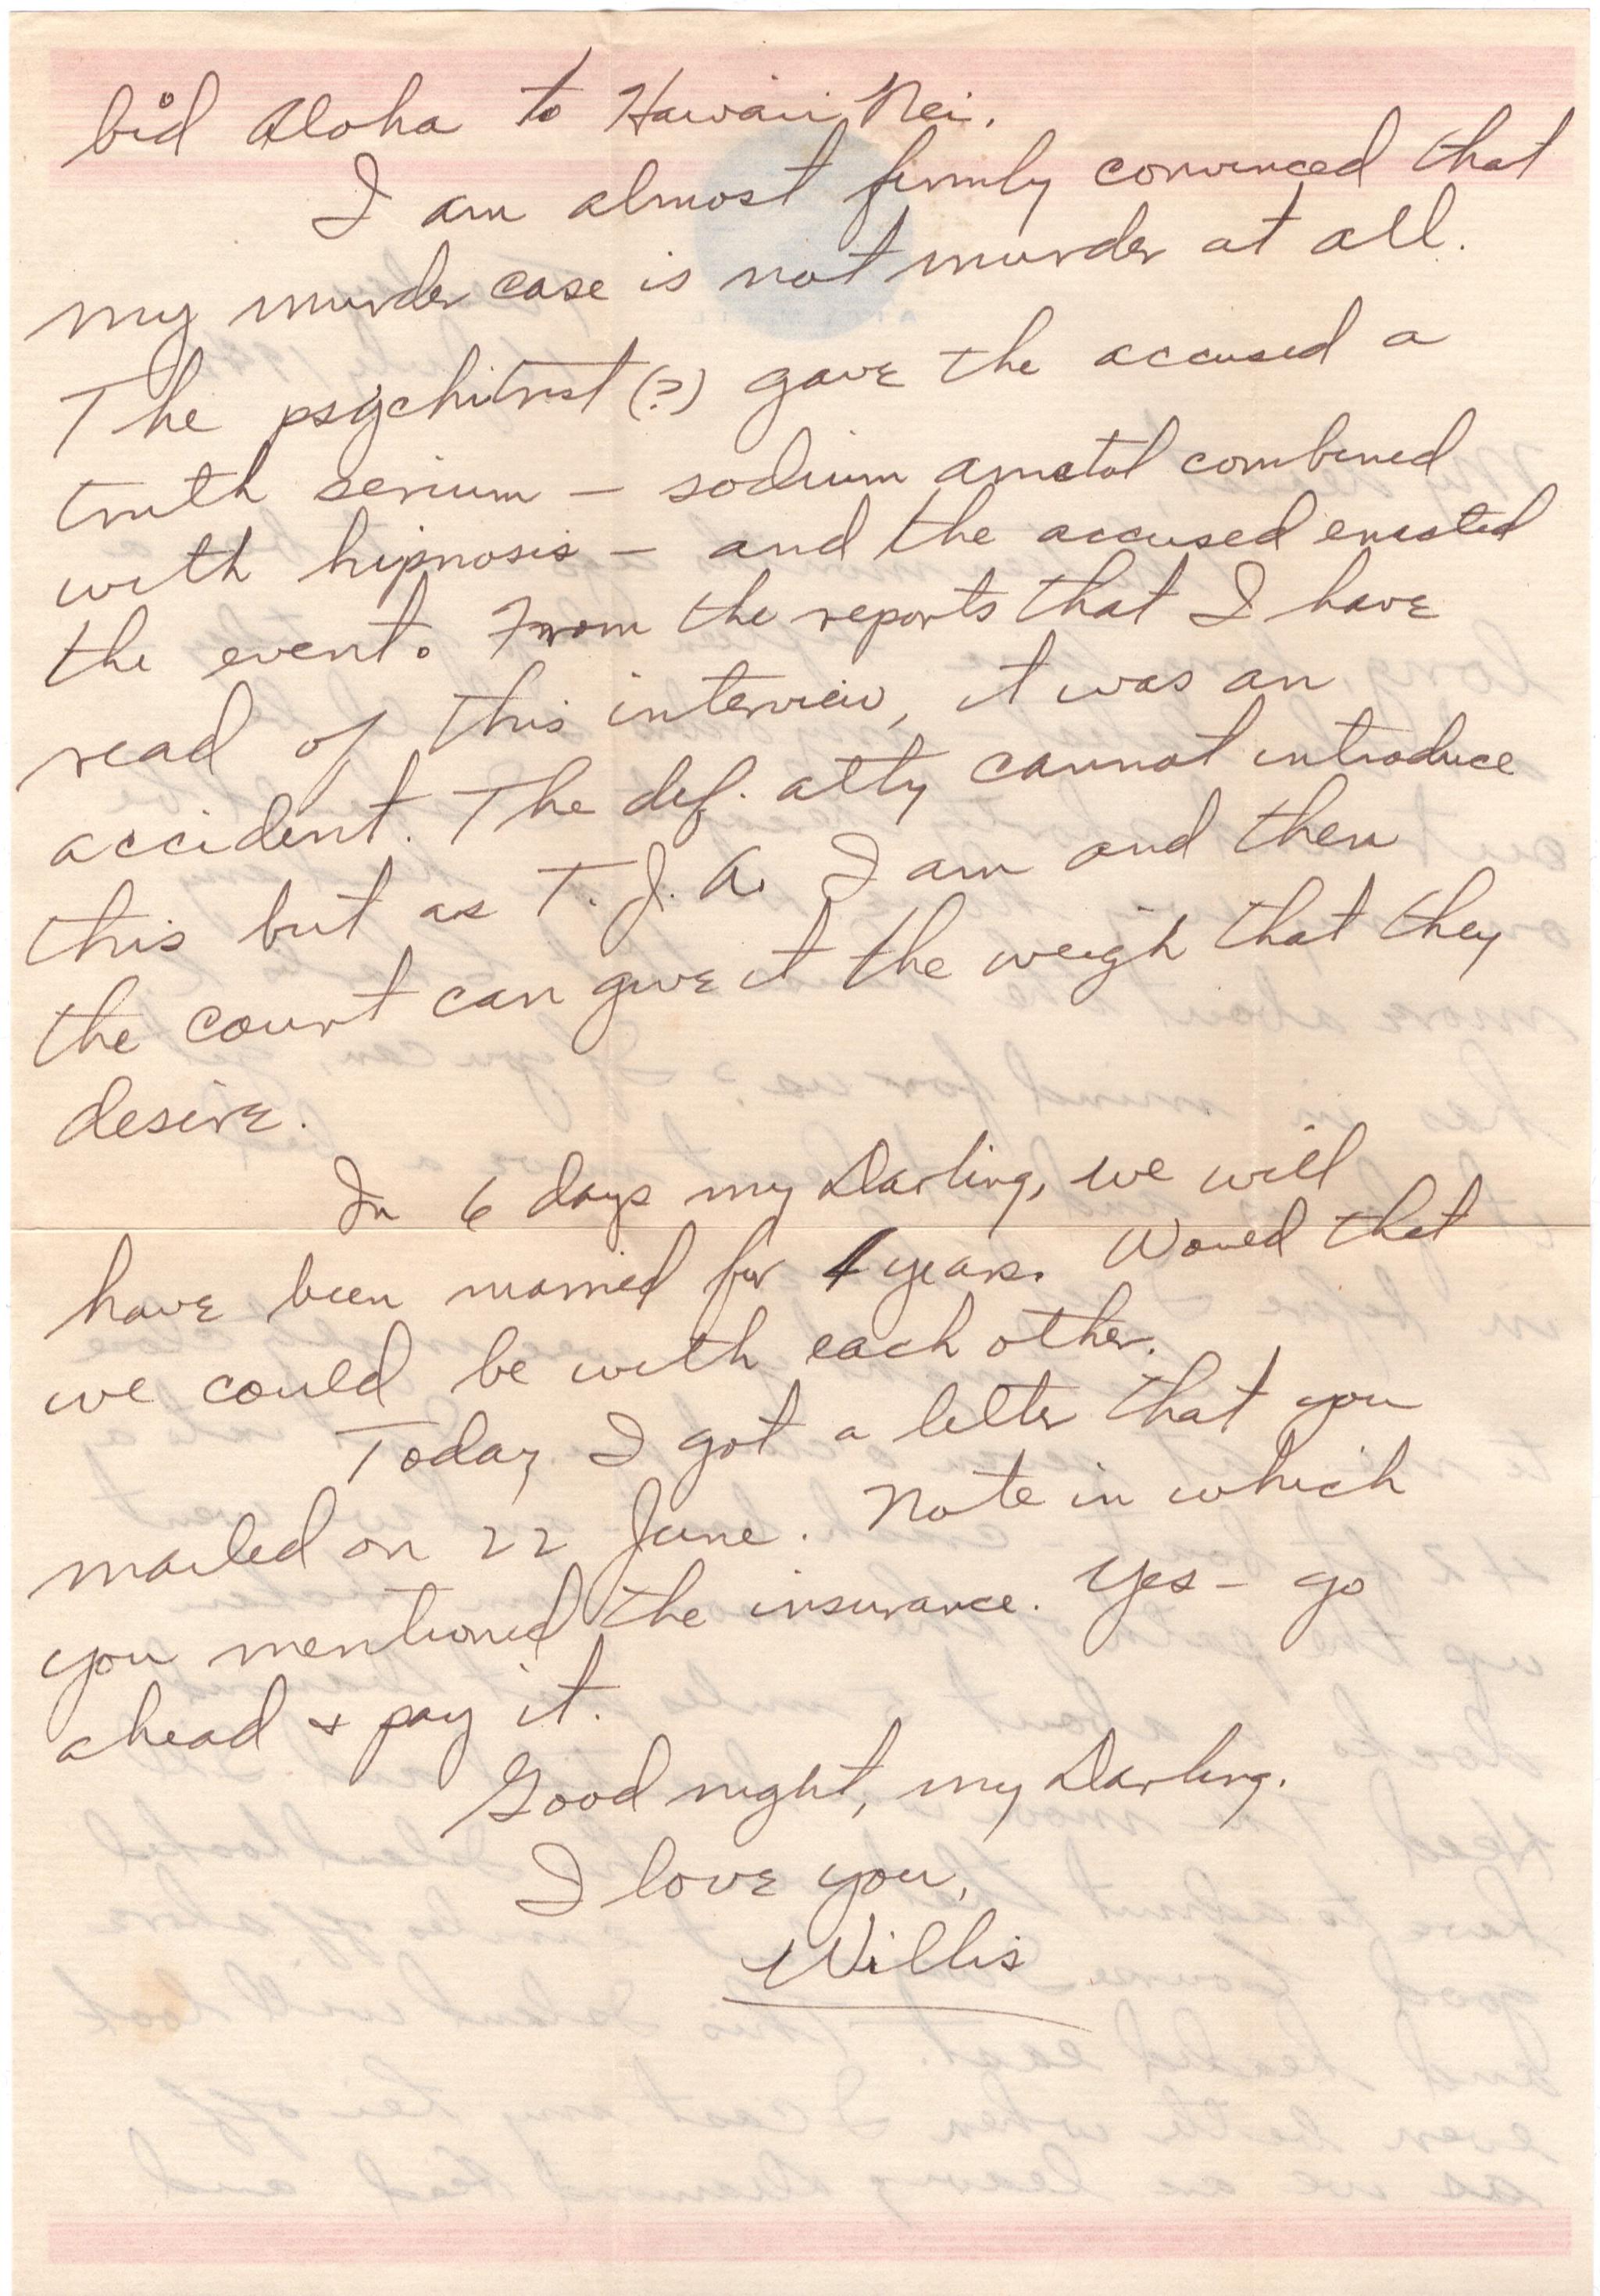 bid Aloha to Hawaii Nei.
I am almost firmly convinced that
my murder case is not murder at all.
The psychitrist (?) gave the accused a
truth serium — sodium amatol combined
with hipnosis — and the accused enacted
the event. From the reports that I have
read of this interview, it was an
accident. The def. atty cannot introduce
this but as T. J. A. I am and then
the court can give it the weigh that they
desire.
In 6 days my Darling, we will
have been married for years. Would that
we could be with each other.
Today I got a letter that you
mailed on 22 June. Note in which
you mentioned the insurance. Yes — go
ahead + pay it.
Good night, my Darling.
I love you,
Willis